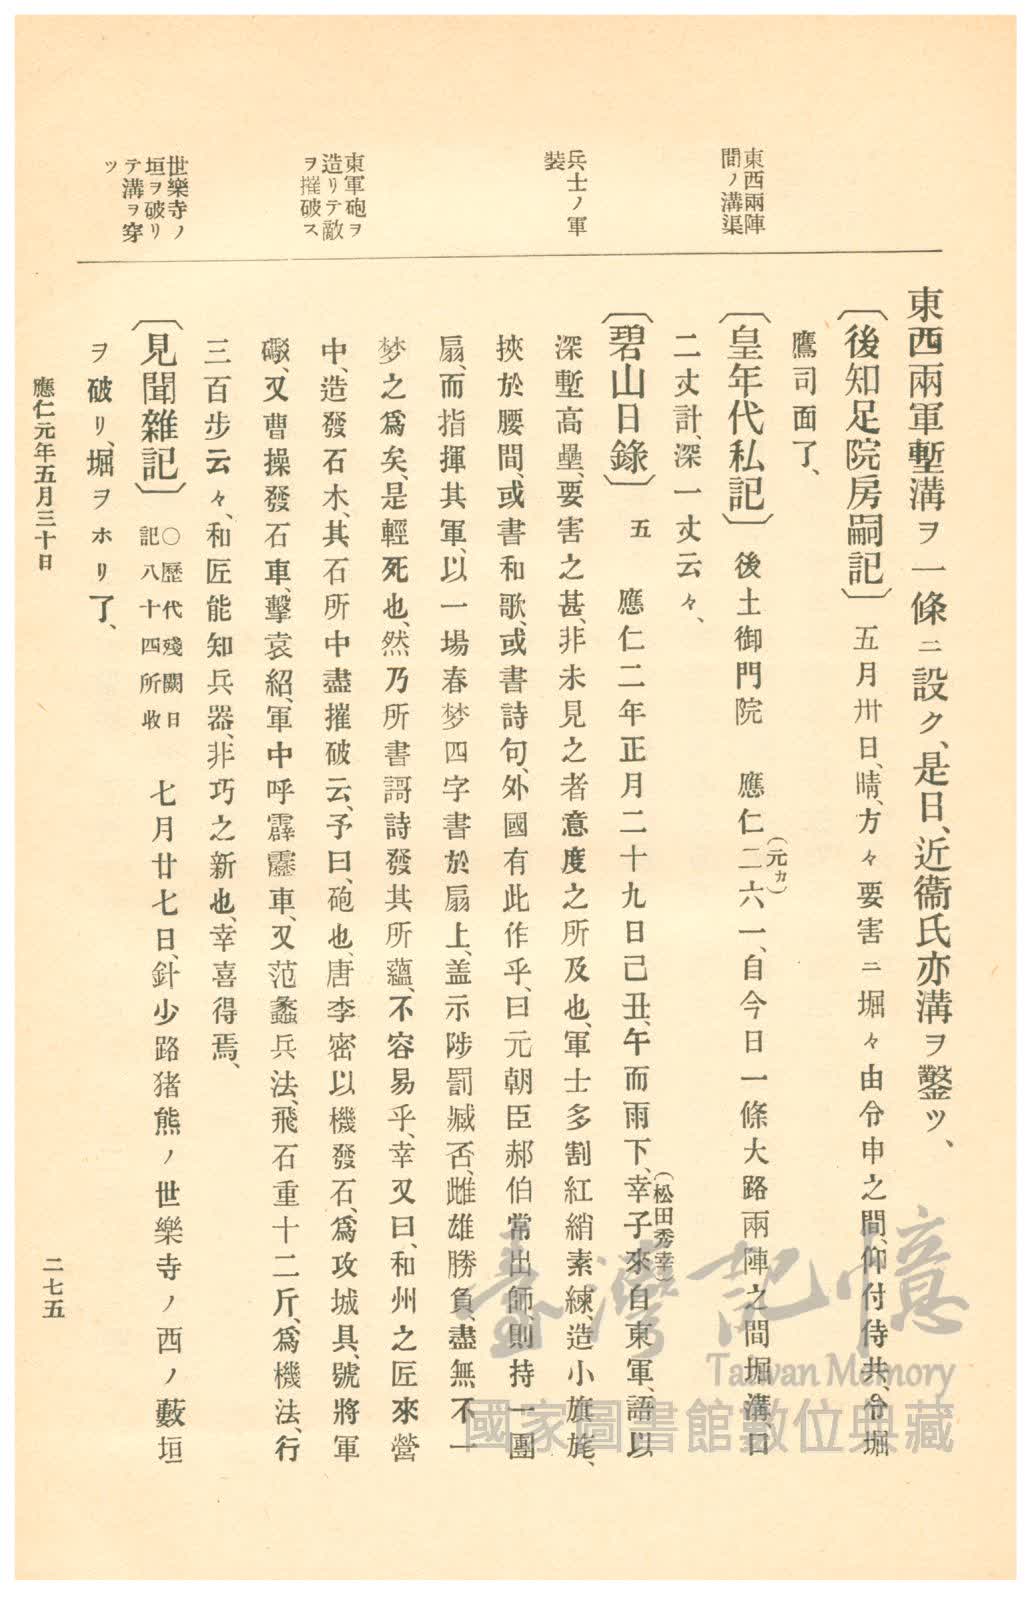 東西兩陣
間ノ溝渠
兵士ノ軍
裝
東軍砲ヲ
造リテ敵
ヲ摧破ス
世樂寺ノ
垣ヲ破リ
テ溝ヲ穿
ツ
東西兩軍塹溝ヲ一條ニ設ク、是日、近衞氏亦溝ヲ鑿ツ、
〔後知足院房嗣記〕五月卅日、晴、方々要害ニ堀々由令申之間、仰付侍共、令堀
鷹司面了、
〔皇年代私記〕後土御門院 應仁二(元カ)六一、自今日一條大路兩陣之間堀溝、口
二丈計、深一丈云々、
〔碧山日錄〕五 應仁二年正月二十九日己丑、午而雨下、幸子(松田秀幸)來自東軍、語以
深塹高壘、要害之甚、非未見之者意度之所及也、軍士多割紅綃素練、造小旗旄、
挾於腰間、或書和歌、或書詩句、外國有此作乎、曰元朝臣郝伯常出師則持一團
扇、而指揮其軍、以一場春梦四字書於扇上、盖示陟罰臧否、雌雄勝負、盡無不一
梦之爲矣、是輕死也、然乃所書謌詩發其所蘊、不容易乎、幸又曰、和州之匠來營
中、造發石木、其石所中盡摧破云、予曰、砲也、唐李密以機發石、爲攻城具、號將軍
礮、又曹操發石車、擊袁紹、軍中呼霹靂車、又范蠡兵法、飛石重十二斤、爲機法、行
三百步云々、和匠能知兵器、非巧之新也、幸喜得焉、
〔見聞雜記〕○歷代殘闕日
記八十四所收 七月廿七日、針少路猪熊ノ世樂寺ノ西ノ藪垣
ヲ破リ、堀ヲホリ了、
應仁元年五月三十日
二七五
臺灣記憶
Taiwan Memory
國家圖書館數位典藏